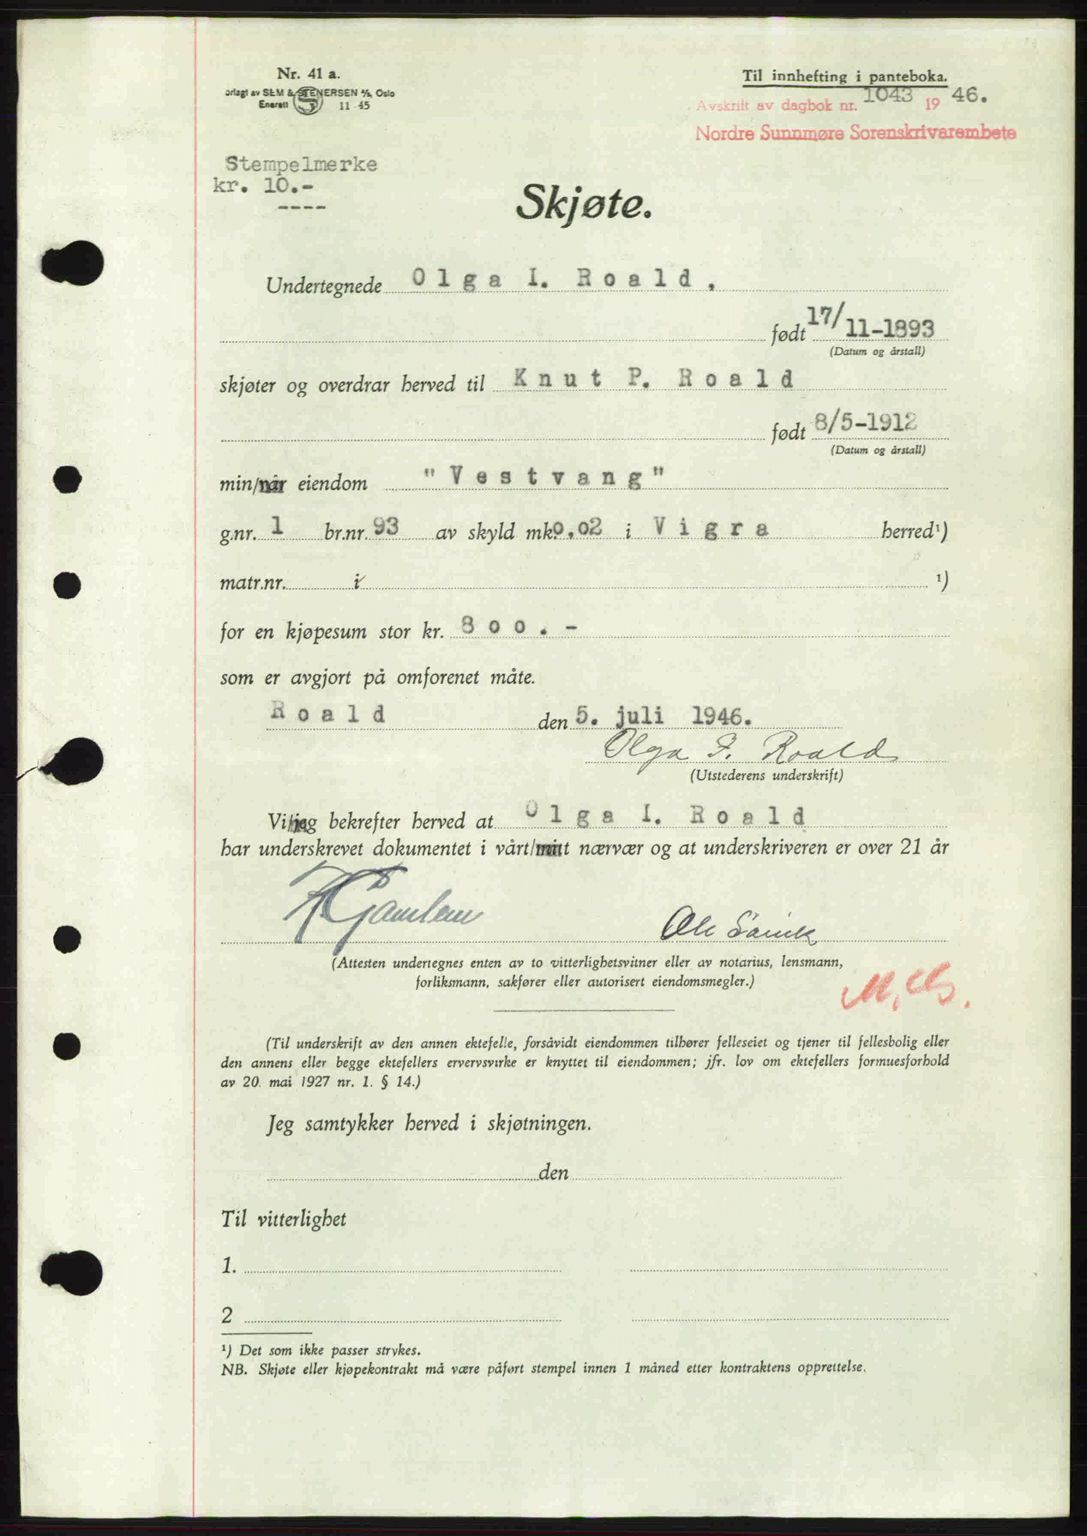 Nr. 41 a.
orlagt av SEM & STENERSEN A/S, Oslo
Enerett S 11 45
Til innhefting i panteboka.
Avskrift av dagbok nr. 1043 19 46.
Nordre Sunnmøre Sorenskrivarembete
Stempelmerke
kr. 10.-
----
Skjøte.
Undertegnede Olga I. Roald,
født 17/11-1893
(Datum og årstall)
skjøter og overdrar herved til Knut P. Roald
født 8/5-1912
(Datum og årstall)
min/vår eiendom "Vestvang"
g.nr. 1 br.nr. 93 av skyld mk. 0,02 i Vigra herred¹)
matr.nr. i ¹)
for en kjøpesum stor kr. 800.-
som er avgjort på omforenet måte.
Roald den 5. juli 1946.
Olga I. Roald
(Utstederens underskrift)
Vi/jeg bekrefter herved at Olga I. Roald
har underskrevet dokumentet i vårt/mitt nærvær og at underskriveren er over 21 år
Gamlem
(Attesten undertegnes enten av to vitterlighetsvitner eller av notarius, lensmann,
forliksmann, sakfører eller autorisert eiendomsmegler.)
(Til underskrift av den annen ektefelle, forsåvidt eiendommen tilhører felleseiet og tjener til fellesbolig eller
den annens eller begge ektefellers ervervsvirke er knyttet til eiendommen; jfr. lov om ektefellers formuesforhold
av 20. mai 1927 nr. 1. § 14.)
Jeg samtykker herved i skjøtningen.
den
Til vitterlighet
1.
2
¹) Det som ikke passer strykes.
NB. Skjøte eller kjøpekontrakt må være påført stempel innen 1 måned etter kontraktens opprettelse.